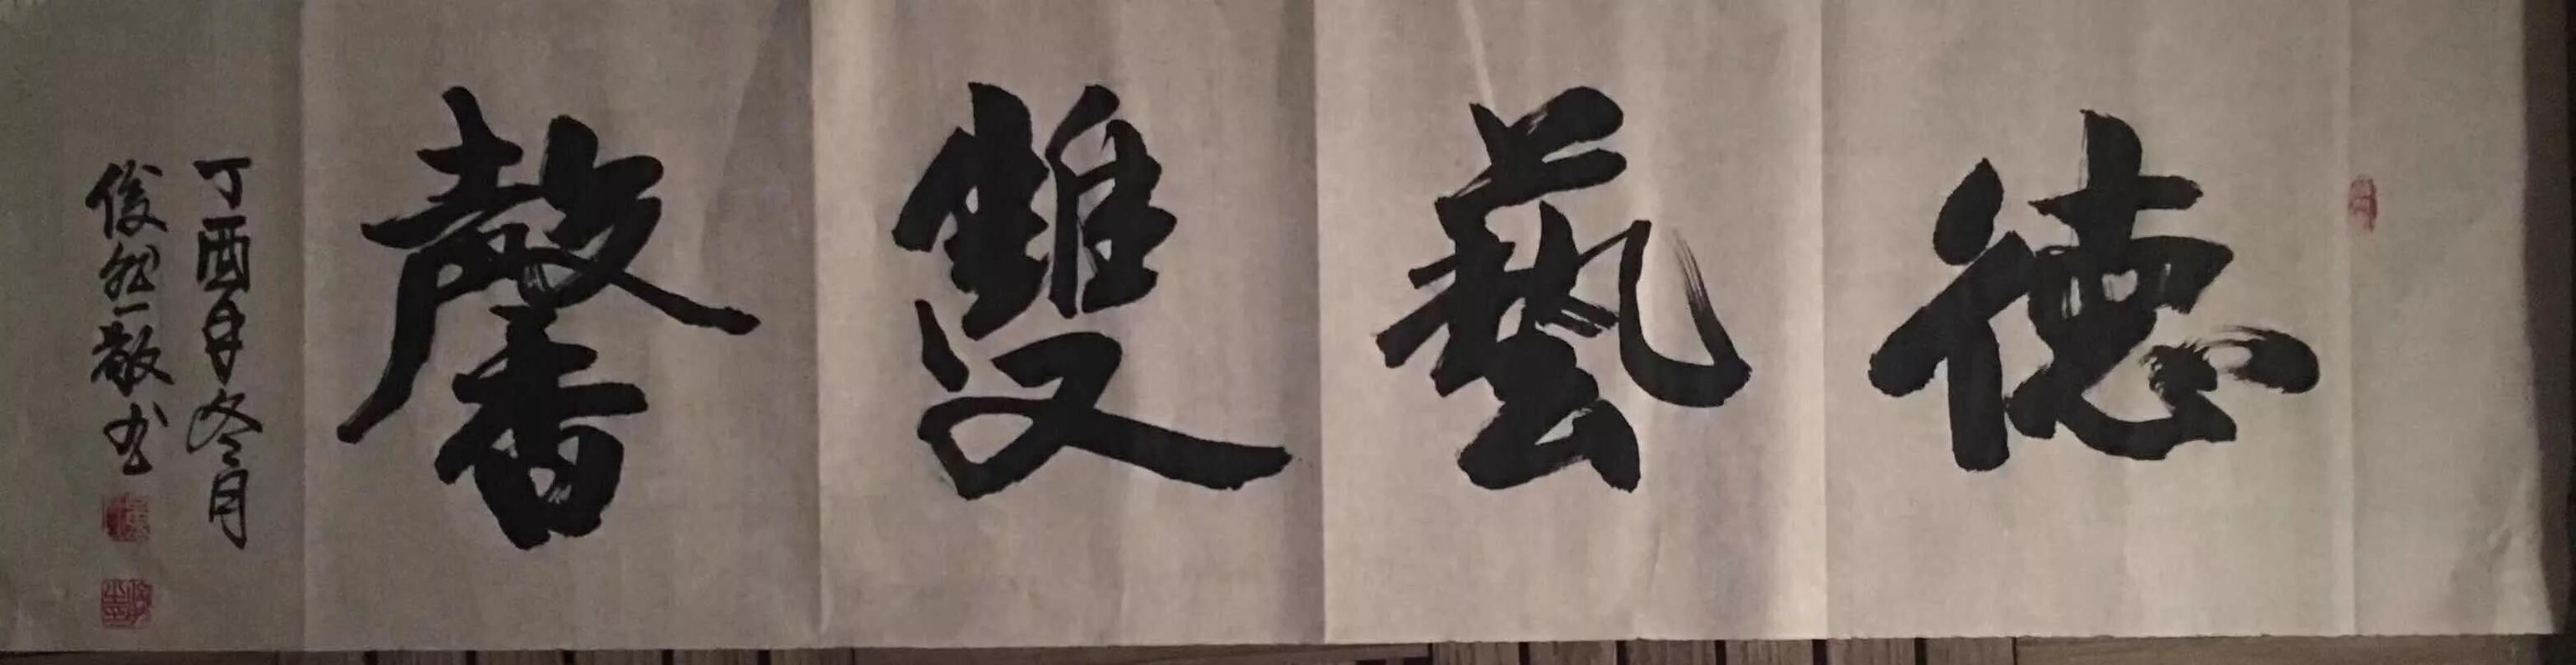 德藝雙馨
丁酉年冬月
俊
敬书